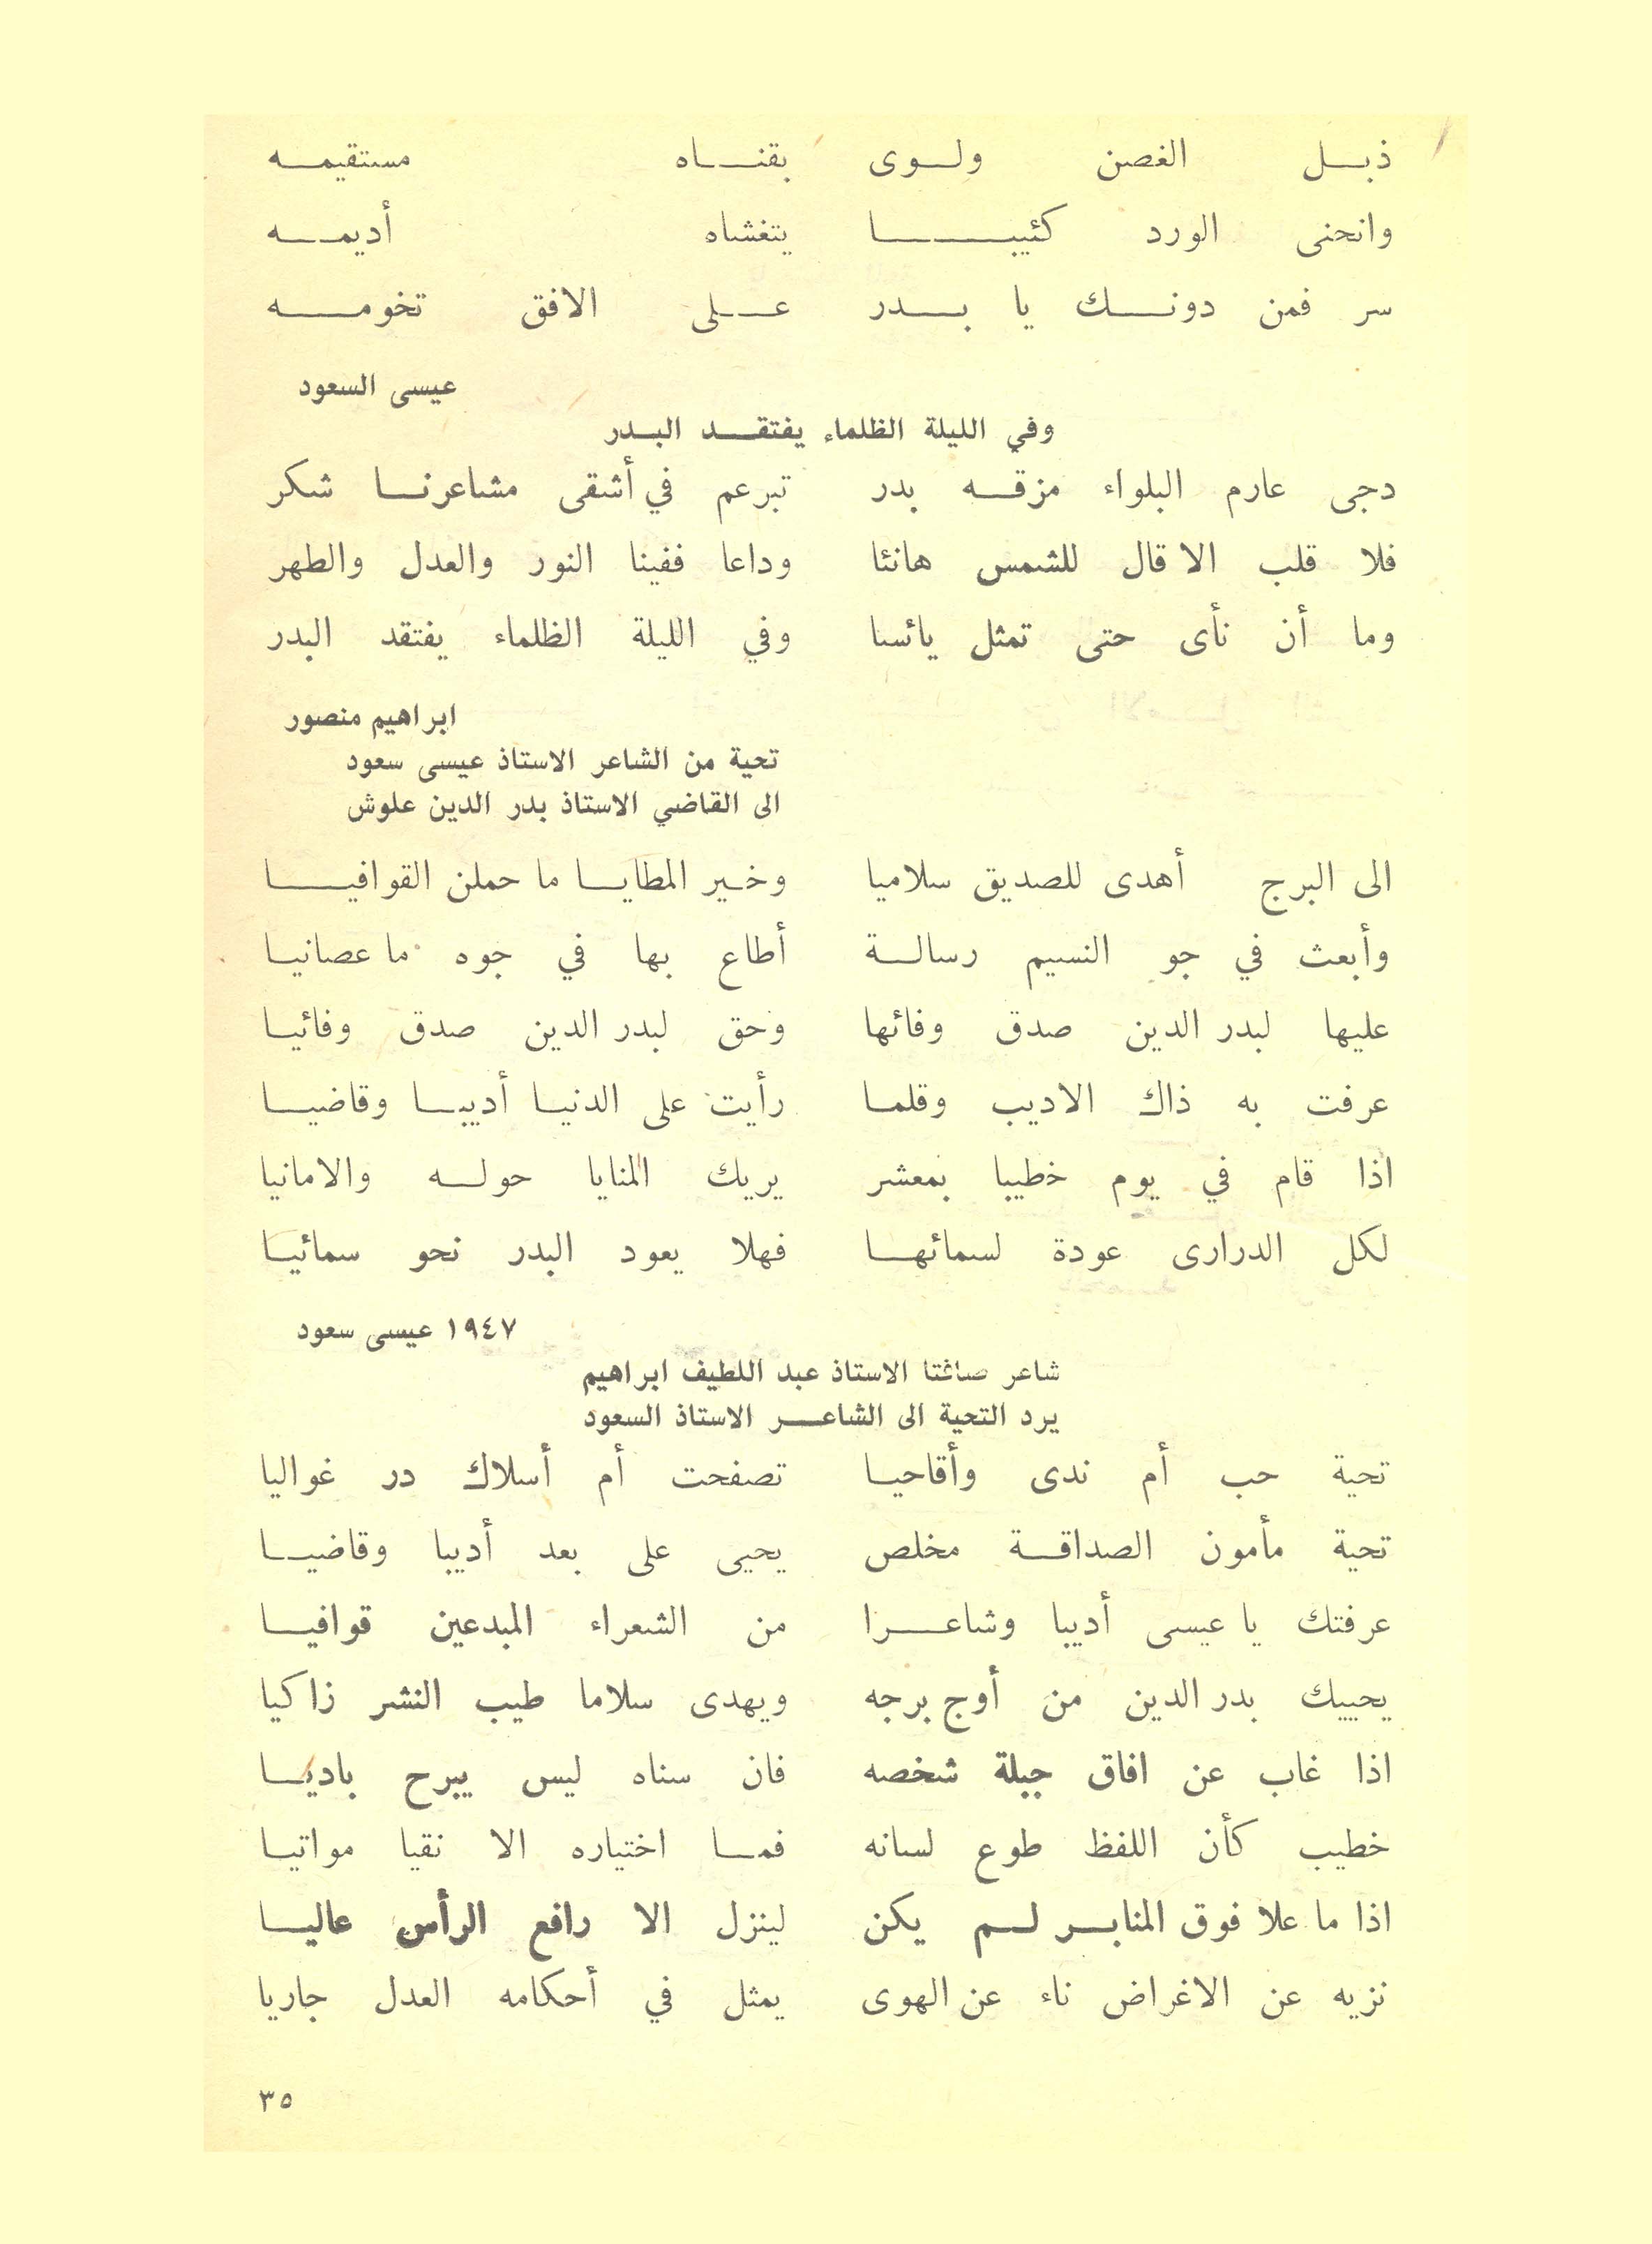 ذبل الغصن ولوى بقناه مستقيمه
وانحنى الورد كئيبا يتغشاه أديمه
سر فمن دونك يا بدر على الافق تخومه
عيسى السعود
وفي الليلة الظلماء يفتقد البدر
دجى عارم البلواء مزقه بدر تبرعم في أشقى مشاعرنا شكر
فلا قلب الا قال للشمس هانئا وداعا ففينا النور والعدل والطهر
وما أن نأى حتى تمثل يائسا وفي الليلة الظلماء يفتقد البدر
ابراهيم منصور
تحية من الشاعر الاستاذ عيسى سعود
الى القاضي الاستاذ بدر الدين علوش
الى البرج أهدى للصديق سلاميا وخير المطايا ما حملن القوافيا
وأبعث في جو النسيم رسالة أطاع بها في جوه ما عصانيا
عليها لبدر الدين صدق وفائها وحق لبدر الدين صدق وفائيا
عرفت به ذاك الاديب وقلما رأيت على الدنيا أديبا وقاضيا
اذا قام في يوم خطيبا بمعشر يريك المنايا حوله والامانيا
لكل الدرارى عودة لسمائها فهلا يعود البدر نحو سمائيا
١٩٤٧ عيسى سعود
شاعر صافتا الاستاذ عبد اللطيف ابراهيم
يرد التحية الى الشاعر الاستاذ السعود
تحية حب أم ندى وأقاحيا تصفحت أم أسلاك در غواليا
تحية مأمون الصداقة مخلص يحيى على بعد أديبا وقاضيا
عرفتك يا عيسى أديبا وشاعرا من الشعراء المبدعين قوافيا
يحييك بدر الدين من أوج برجه ويهدى سلاما طيب النشر زاكيا
اذا غاب عن افاق جبلة شخصه فان سناه ليس يبرح باديا
خطيب كأن اللفظ طوع لسانه فما اختياره الا نقيا مواتيا
اذا ما علا فوق المنابر لم يكن لينزل الا رافع الرأس عاليا
نزيه عن الاغراض ناء عن الهوى يمثل في أحكامه العدل جاريا
٣٥